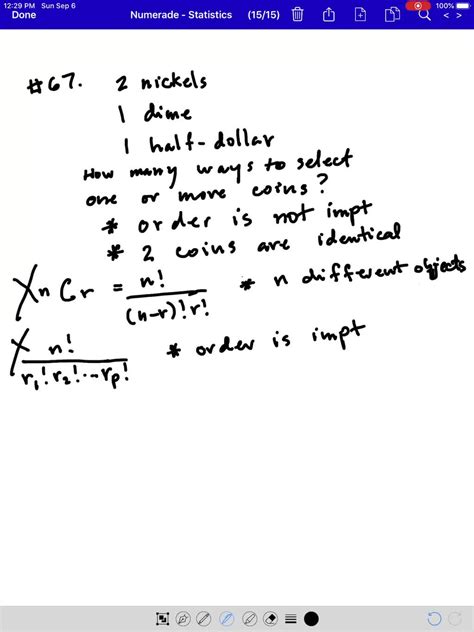 12:29 PM Sun Sep 6 100%
Done Numerade - Statistics (15/15)
#67. 2 nickels
1 dime
1 half-dollar
How many ways to select
one or more coins?
* order is not impt
* 2 coins are identical
X nCr = n! / (n-r)! r! * n different objects
X n! / r₁! r₂! ... rp! * order is impt